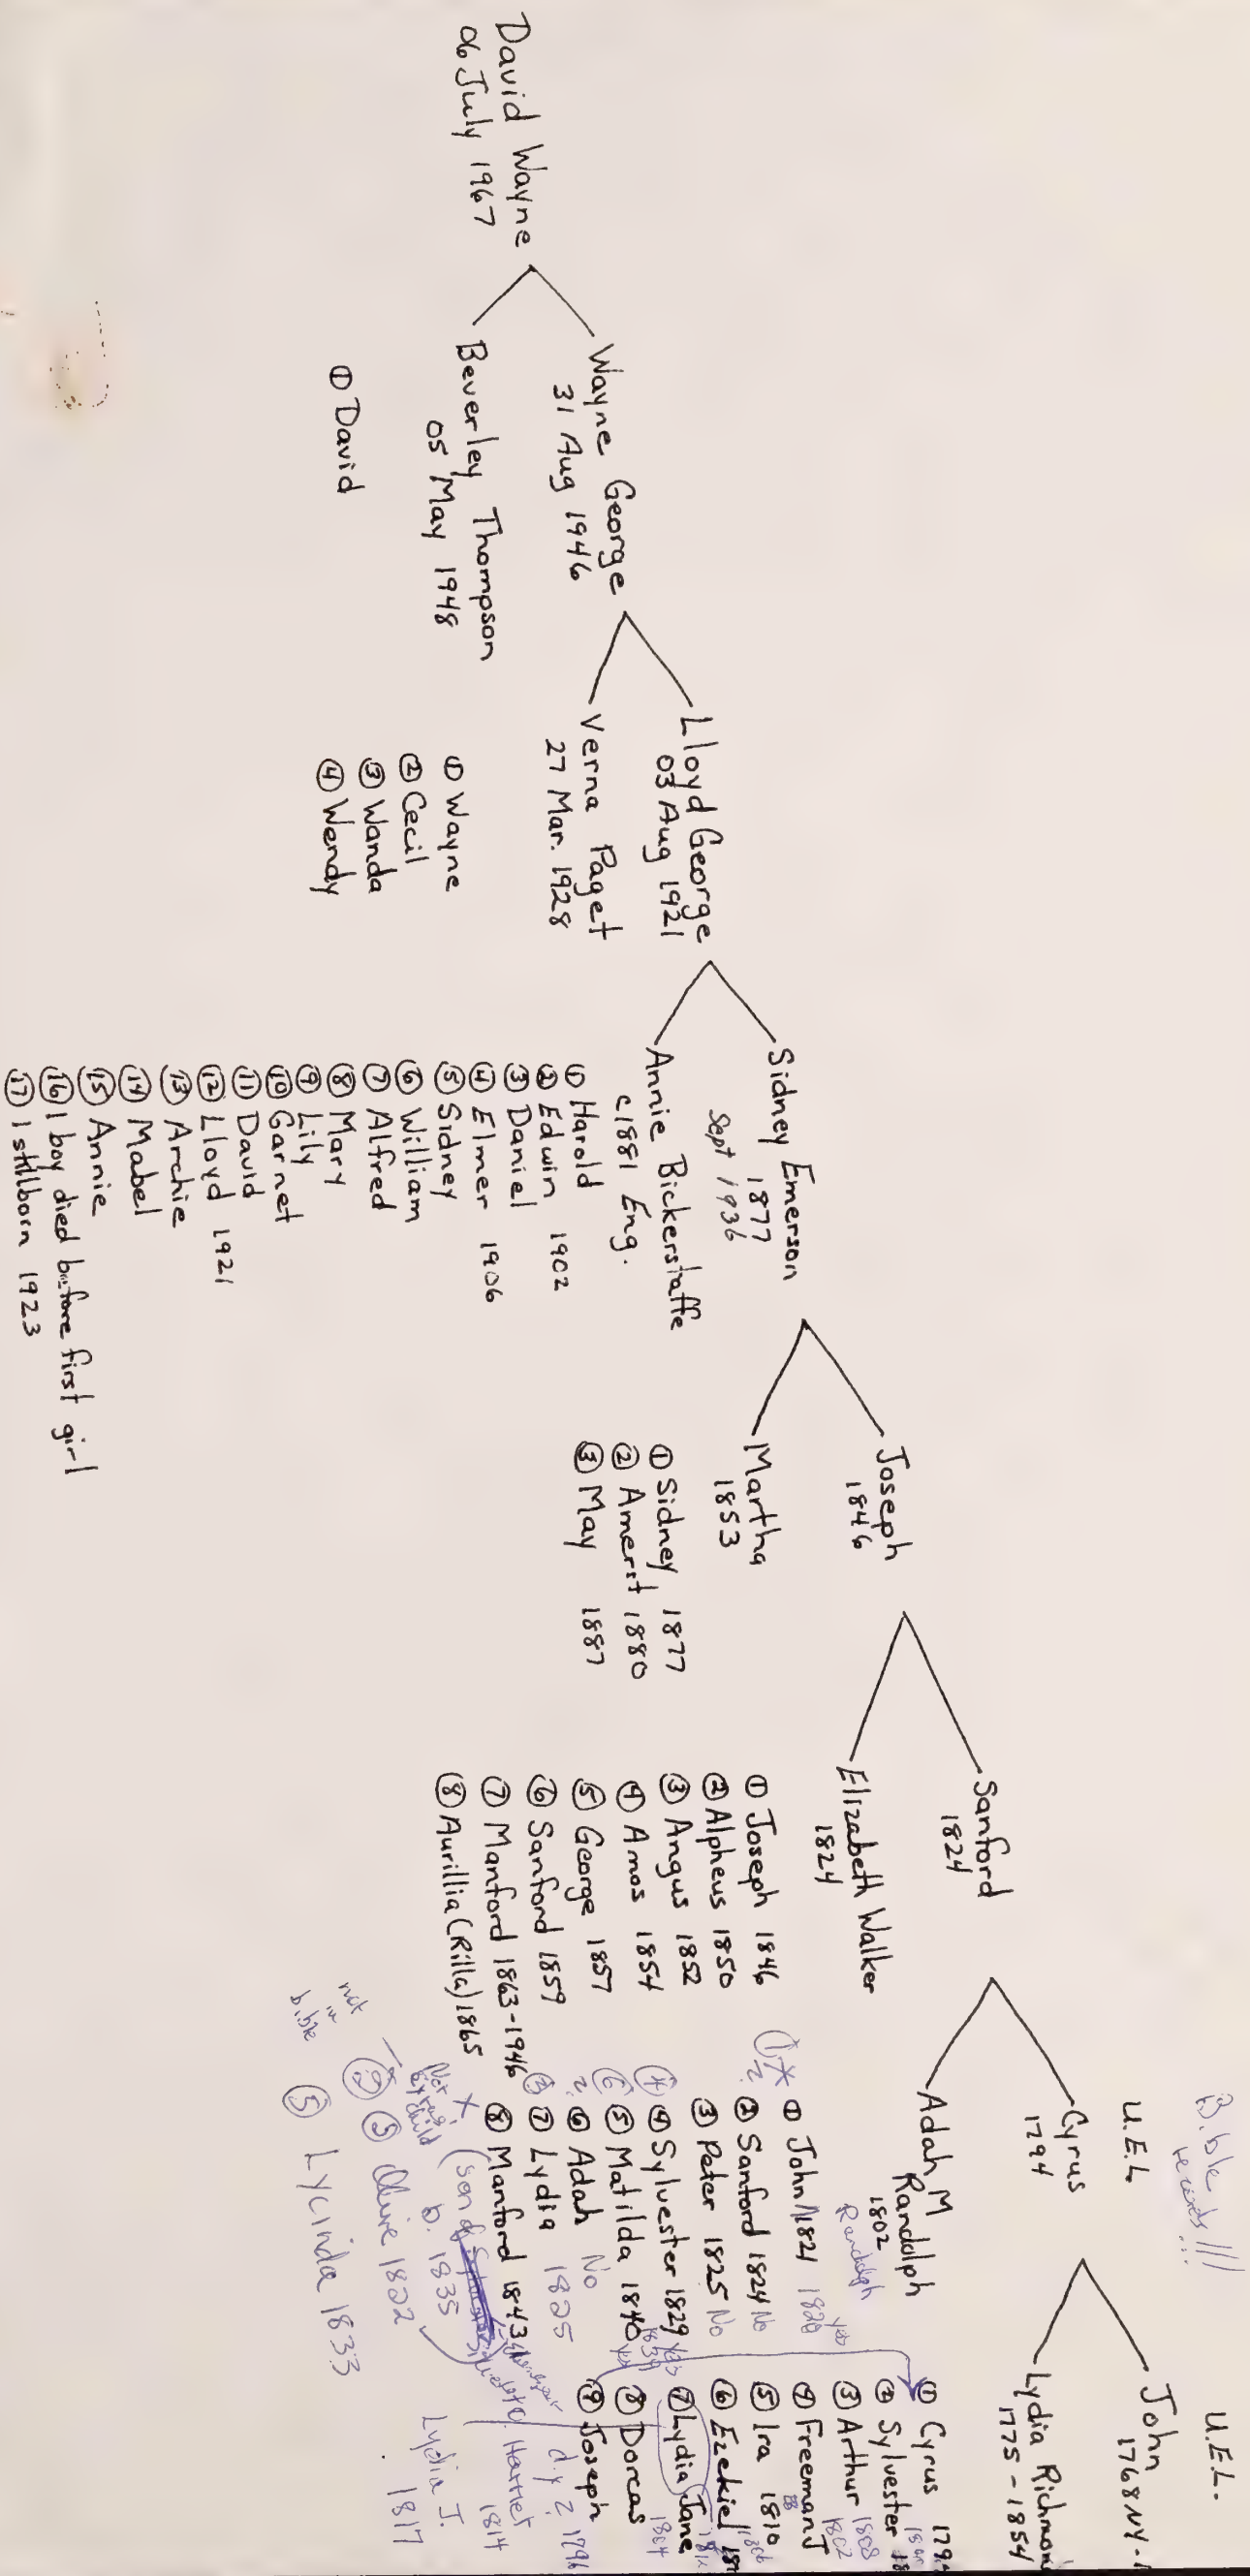 David Wayne
06 July 1967
Wayne George
31 Aug 1946
Beverley Thompson
05 May 1948
① David
Lloyd George
03 Aug 1921
Verna Paget
27 Mar. 1928
① Wayne
② Cecil
③ Wanda
④ Wendy
Sidney Emerson
1877
Sept 1936
Annie Bickerstaffe
c1881 Eng.
① Harold
② Edwin 1902
③ Daniel
④ Elmer 1906
⑤ Sidney
⑥ William
⑦ Alfred
⑧ Mary
⑨ Lily
⑩ Garnet
⑪ David
⑫ Lloyd 1921
⑬ Archie
⑭ Mabel
⑮ Annie
⑯ 1 boy died before first girl
⑰ 1 stillborn 1923
Joseph
1846
Martha
1853
① Sidney 1877
② Amerst 1880
③ May 1887
Sanford
1824
Elizabeth Walker
1824
① Joseph 1846
② Alpheus 1850
③ Angus 1852
④ Amos 1854
⑤ George 1857
⑥ Sanford 1859
⑦ Manford 1863-1946
⑧ Aurillia (Rilla) 1865
Bible records!!!
U.E.L
Cyrus
1794
Adah M Randolph
1802
Randolph
① John 1821 1820 yes
② Sanford 1824 No
③ Peter 1825 No
④ Sylvester 1829 yes
⑤ Matilda 1840 1839 yes
⑥ Adah No
⑦ Lydia 1835
⑧ Manford 1843
X (son of
Not child b. 1835
③ Olive 1832
not in bible
⑤ Lycinda 1833
U.E.L.
John
1768 NY
Lydia Richmon
1775-1854
① Cyrus 179
② Sylvester 18
③ Arthur 1808
④ Freeman J 1802
⑤ Ira 1810
⑥ Ezekiel 18
⑦ Lydia Jane
⑧ Dorcas 1804
⑨ Joseph
d.y 2. 1796
Harriet 1814
Lydia J. 1817